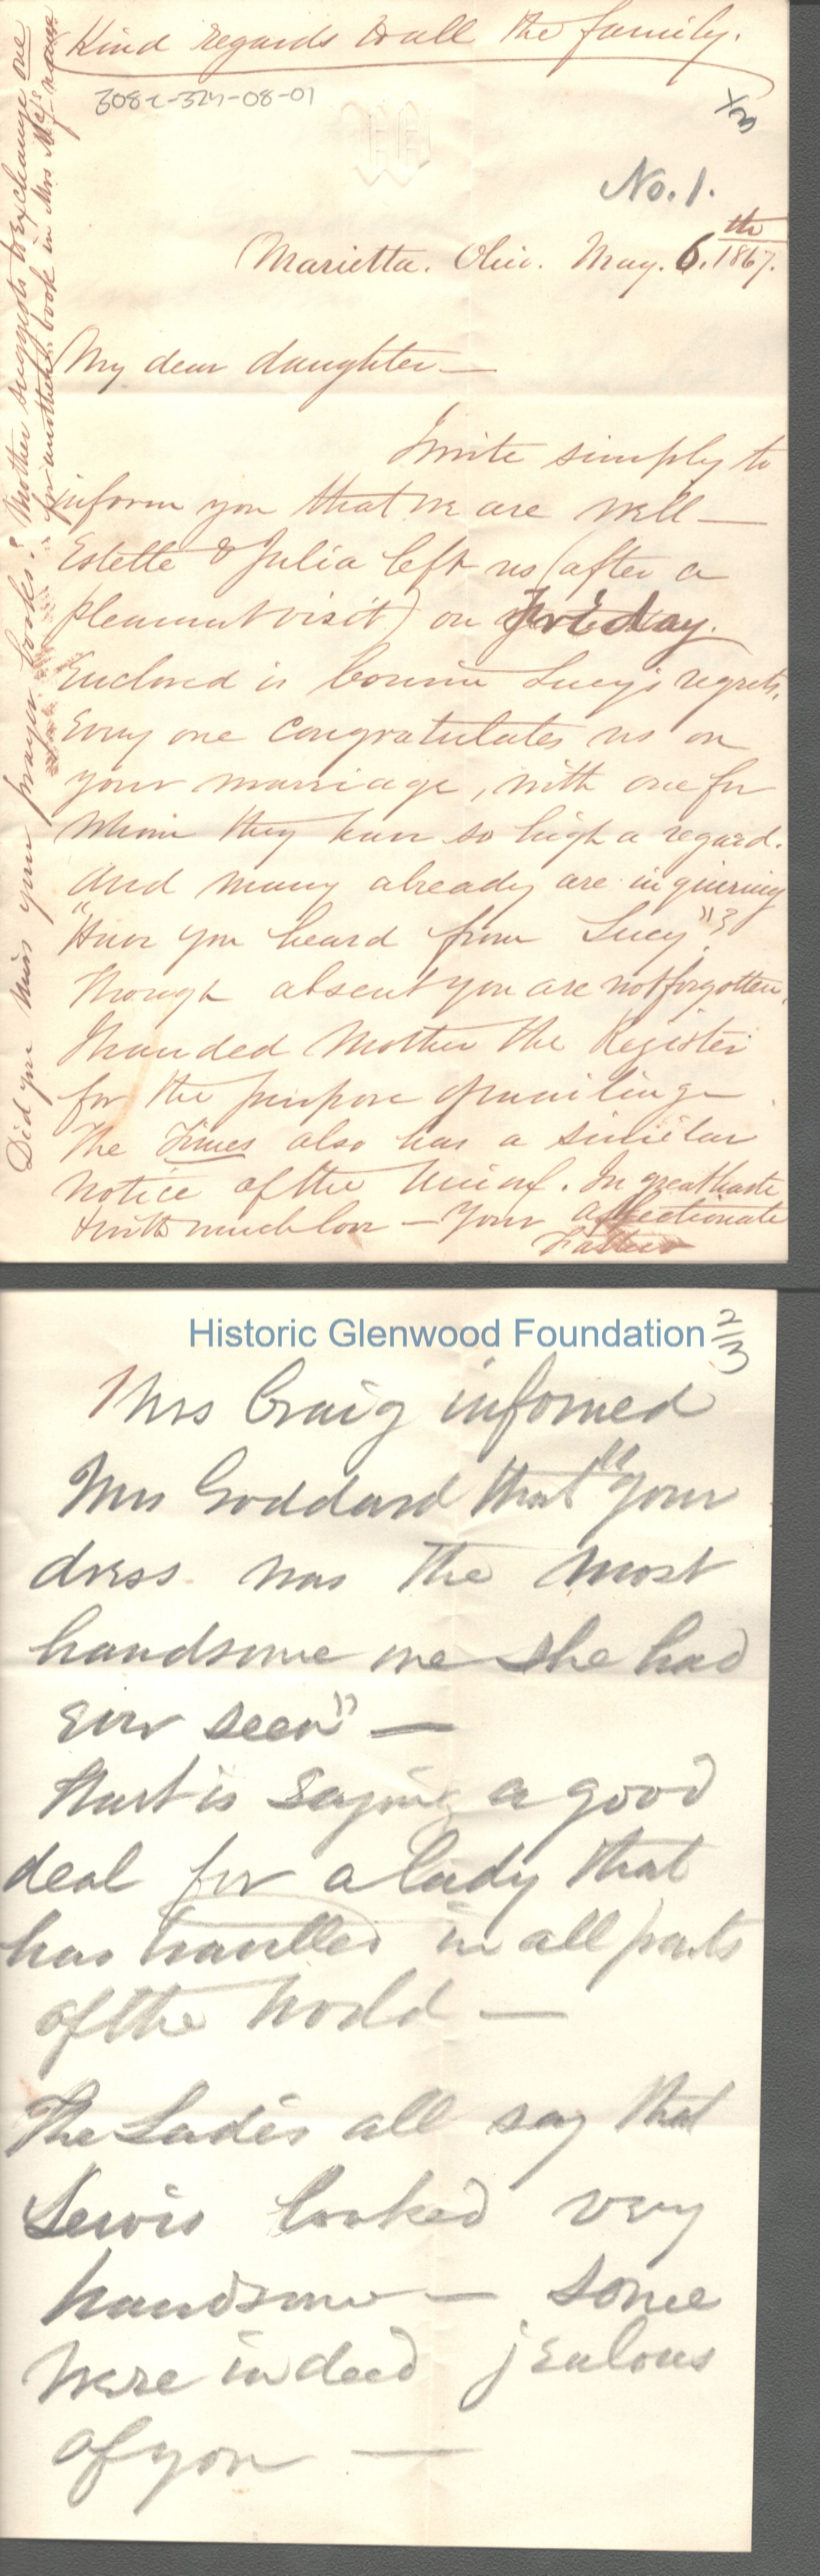 Kind regards to all the family.
308-2-324-08-01
1/3
W
No. 1.
Marietta. Ohio. May. 6.th 1867.
My dear daughter —
I write simply to
inform you that we are well —
Estelle & Julia left us (after a
pleasant visit) on Friday.
Enclosed is Cousin Lucy's regrets.
Every one congratulates us on
your marriage, with one for
whom they have so high a regard.
And many already are inquiring
"Have you heard from Lucy"?
Though absent you are not forgotten.
I handed Mother the Register
for the purpose of mailing —
The Times also has a similar
notice of the Union. In great haste
& with much love — Your affectionate
Father
Did you miss your prayer books? Mother suggests to exchange one
for another book in Mrs
Historic Glenwood Foundation
2/3
Mrs Craig informed
Mrs Goddard that "your
dress was the most
handsome one she had
ever seen" —
that is saying a good
deal for a lady that
has travelled in all parts
of the World —
The Ladies all say that
Lewis looked very
handsome — some
were indeed jealous
of you —